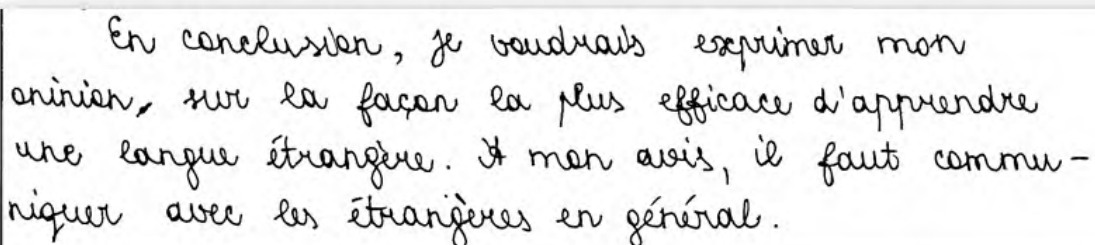 En conclusion, je voudrais exprimer mon
oninion, sur la façon la plus efficace d'apprendre
une langue étrangère. A mon avis, il faut commu-
niquer avec les étrangères en général.